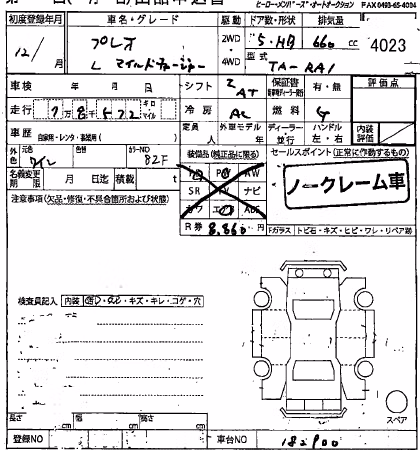 ヒーロー・メンバーズ・オートオークション FAX 0493-65-4094
初度登録年月 車名・グレード 駆動 ドア数・形状 排気量
12/月 プレオ 2WD・4WD 5・HB 660 cc 4023
L 型式 TA-RA1
車検 年 月 日 シフト 2 AT 保証書 有・無 評価点
走行 7万8千572 キロ マイル 冷房 AC 燃料 G
車歴 自家用・レンタ・事業用( ) 定員 人 外車モデル 年 ディーラー・並行 ハンドル 左・右 内装評価
外色 元色 ワイン 色替 カラーNO 82F 装備品(純正品に限る) セールスポイント(正常に作動するもの)
名義変更期限 月 日迄 積載 t PS PW AW
SR AV ナビ
カワ エ
R券 8,860 円
ノークレーム車
注意事項(欠品・修復・不具合箇所および状態)
Fガラス トビ石・キズ・ヒビ・ワレ・リペア跡
検査員記入 内装 ・キズ・キレ・コゲ・穴
スペア
長さ cm 幅 cm 高さ cm
登録NO 車台NO 182900